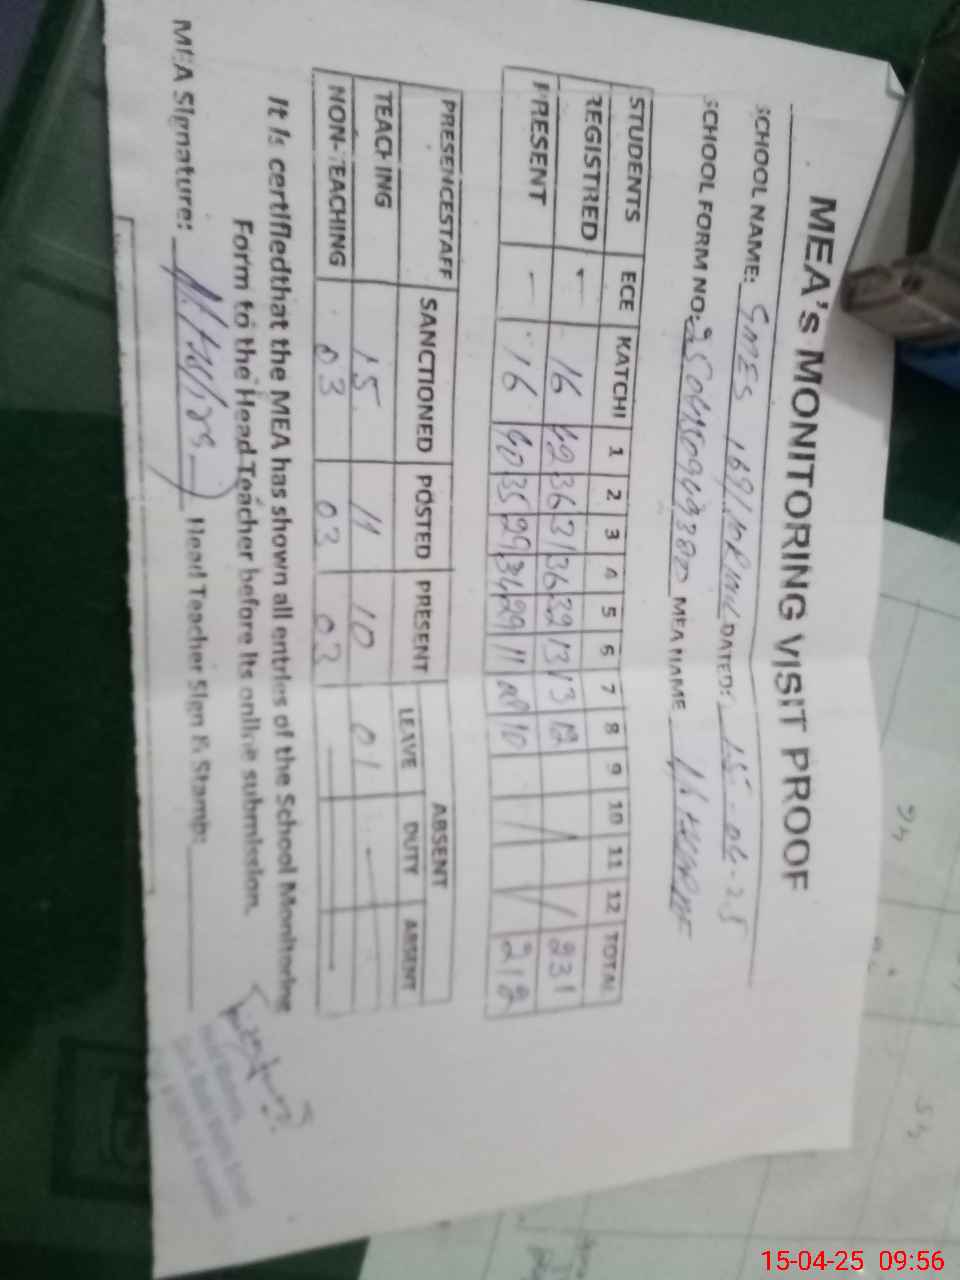 MEA's MONITORING VISIT PROOF
SCHOOL NAME: GMES 169/ DATED: 15-04-25
SCHOOL FORM NO: MEA NAME
STUDENTS ECE KATCHI 1 2 3 4 5 6 7 8 9 10 11 12 TOTAL
REGISTRED - 16 42 36 31 36 32 13 13 12 / / 231
PRESENT - 16 40 35 29 34 29 11 08 10 / / 212
PRESENCESTAFF SANCTIONED POSTED PRESENT ABSENT
LEAVE DUTY ABSENT
TEACHING 15 11 10 01 -
NON-TEACHING 03 03 03
It is certifiedthat the MEA has shown all entries of the School Monitoring
Form to the Head Teacher before its online submission.
MEA Signature: Head Teacher Sign & Stamp:
15-04-25 09:56